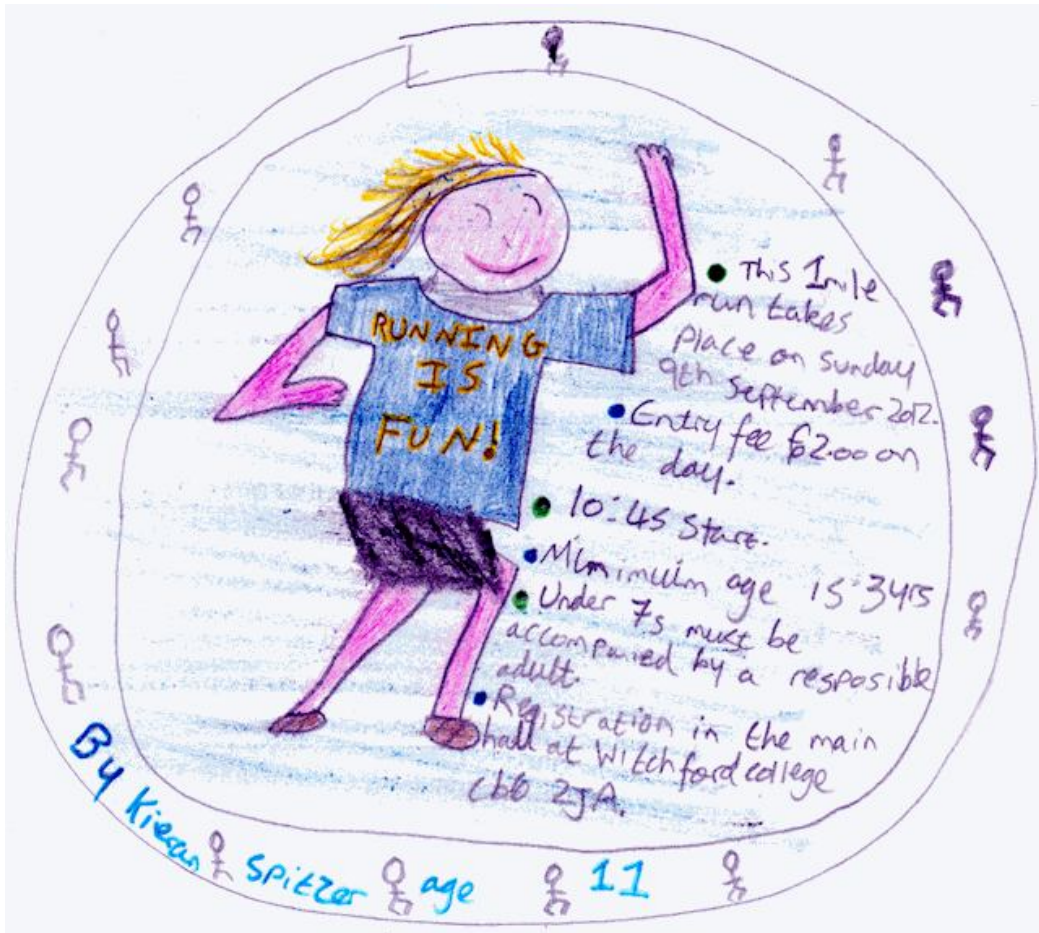 RUNNING
IS
FUN!
• This 1mile
run takes
place on sunday
9th September 2012.
• Entry fee £2.00 on
the day.
• 10:45 Start.
• Minimuim age is 3yrs
• Under 7s must be
accompanied by a resposible
adult.
• Registration in the main
hall at Witchford college
Cb6 2JA.
By Kieran Spitzer age 11